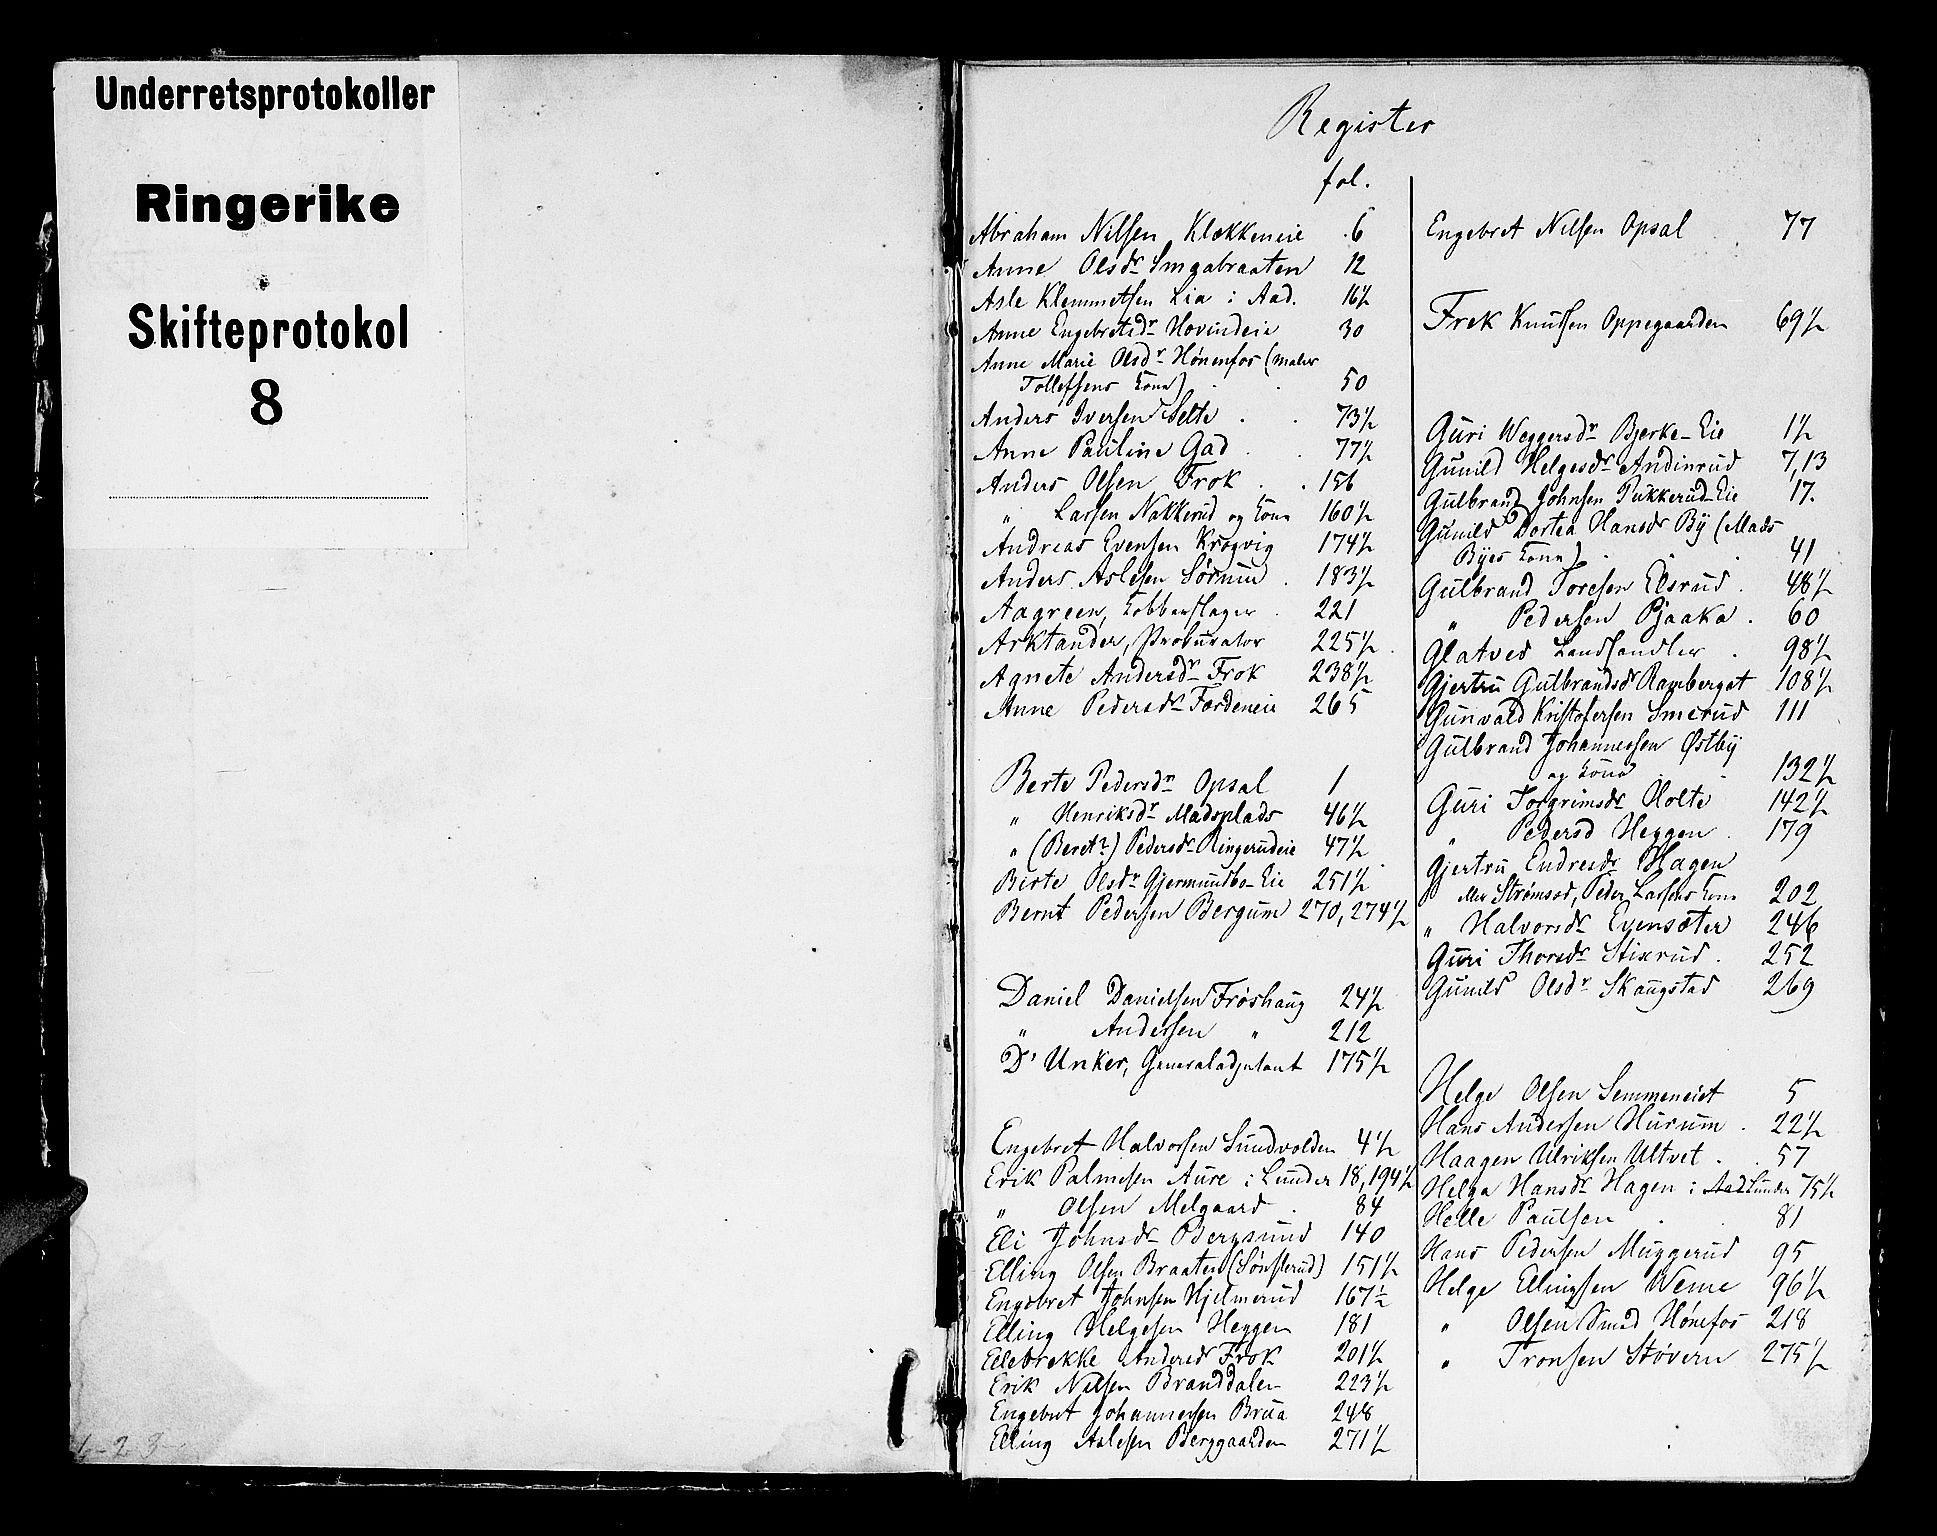 Underretsprotokoller
Ringerike
Skifteprotokol
8
6-23-
Register
fol.
Abraham Nilsen Klækkeneie 6
Anne Olsdr Smgabraaten 12
Asle Klemmetsen Lia i Aad. 16½
Anne Engebretsdr Hovindeie 30
Anne Marie Olsdr Hönenfos (maler
Tollefsens Kone) 50
Anders Iversen Selte 73½
Anne Pauline Gad 77½
Anders Olsen Frok 156
" Larsen Nakkerud og Kone 160½
Andreas Evensen Krogvig 174½
Anders Aslesen Sörum 183½
Aagreen, Kobberslager 221
Arktander, Prokurator 225½
Agnete Andersdr Frok 238½
Anne Pedersdr Færdeneie 265
Berte Pedersdr Opsal 1
" Henriksdr Madsplads 46½
" (Beret?) Pedersdr Ringerudeie 47½
Birte Olsdr Gjermundbo-Eie 251½
Bernt Pedersen Bergum 270, 274½
Daniel Danielsen Fröshaug 24½
" Andersen " 212
D'Unker, Generaladjutant 175½
Engebret Halvorsen Sundvolden 4½
Erik Palmesen Aure i Lunder 18, 194½
" Olsen Melgaard 84
Eli Johnsdr Bergsund 140
Elling Olsen Braaten (Sönsterud) 151½
Engebret Johnsen Hjelmerud 167½
Elling Helgesen Heggen 181
Ellebrekke Andersdr Frok 201½
Erik Nilsen Branddalen 223½
Engebret Johannesen Brua 248
Elling Aslesen Berggaarden 271½
Engebret Nilsen Opsal 77
Frek Knutsen Oppegaarden 69½
Guri Weggersdr Bjerke-Eie 1½
Gunild Helgesdr Andinrud 7, 13
Gulbrand Johnsen Pukkerud-Eie 17.
Gunild Dortea Hansdr By (Mads
Byes Kone) 41
Gulbrand Toresen Elsrud 48½
" Pedersen Pjaaka 60
Glatved Landhandler 98½
Gjertru Gulbrandsdr Ramberget 108½
Gunvald Kristofersen Smerud 111
Gulbrand Johannessen Østby
og Kone 132½
Guri Torgrimsdr Holte 142½
" Pedersd Heggen 179
Gjertru Endresdr Hagen
eller Strömsod, Peder Larsens Kone 202
" Halvorsdr Evensæter 246
Guri Thorsdr Stixrud 252
Gunild Olsdr Skaugstad 269
Helge Olsen Semmeneiet 5
Hans Andersen Hurum 22½
Haagen Ulriksen Ultvet 57
Helga Hansdr Hagen i Aad Lunder 75½
Helle Paulsen 81
Hans Pedersen Muggerud 95
Helge Ellingsen Weme 96½
" Olsen Smed Hönefos 218
" Tronsen Stövern 275½